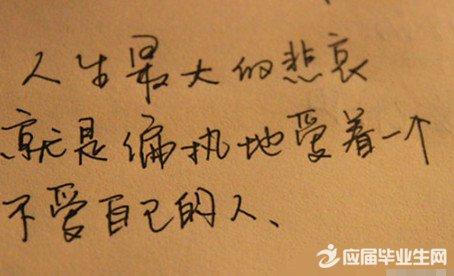 人生最大的悲哀
就是偏执地爱着一个
不爱自己的人、
应届毕业生网